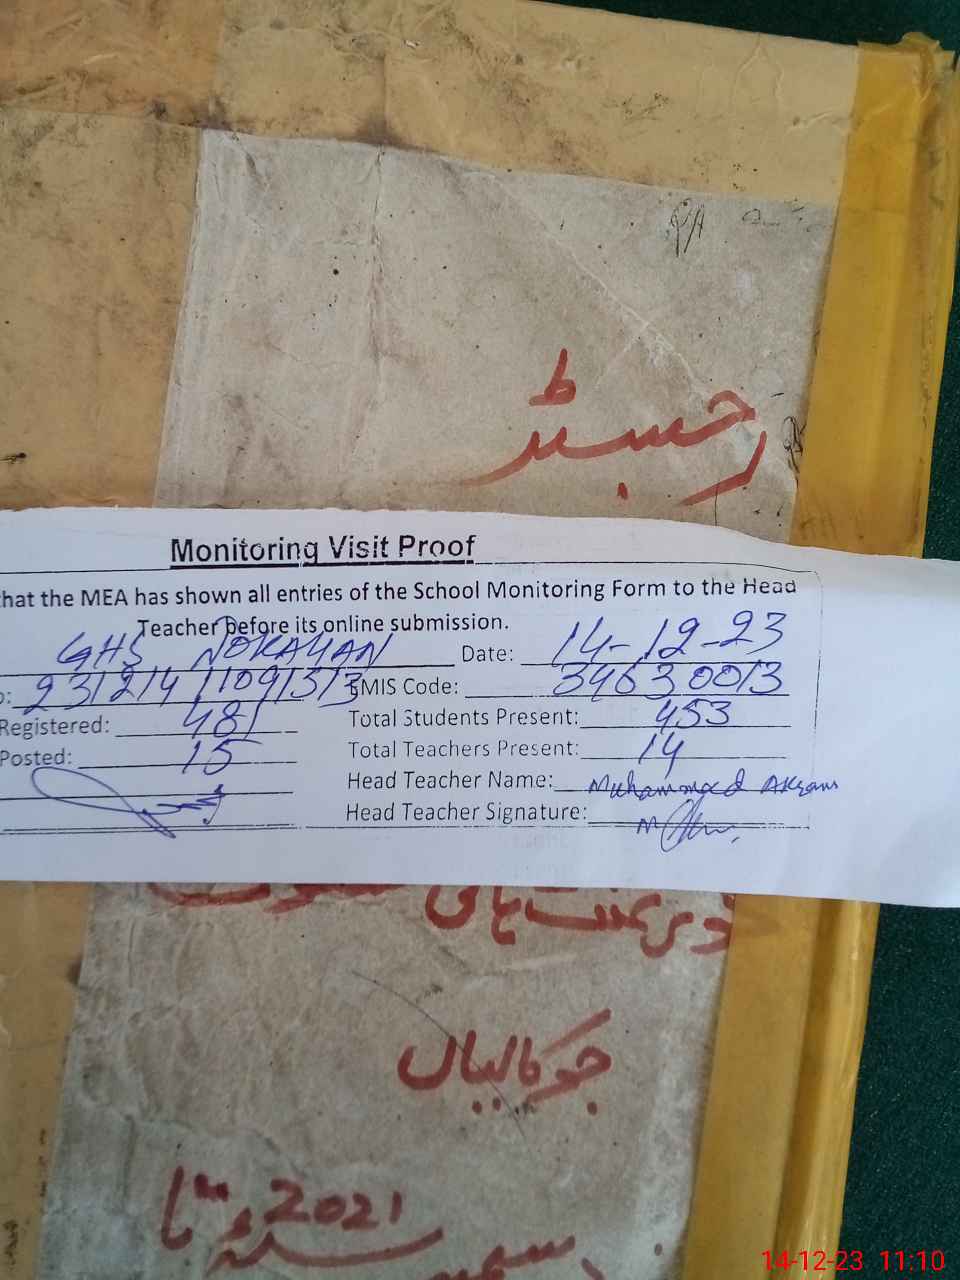 رجسٹر
Monitoring Visit Proof
that the MEA has shown all entries of the School Monitoring Form to the Head
Teacher before its online submission.
GHS JOKALIAN Date: 14-12-23
o: 23121411091513 EMIS Code: 34630013
Registered: 481 Total Students Present: 453
Posted: 15 Total Teachers Present: 14
Head Teacher Name: Muhammad Akram
Head Teacher Signature:
گورنمنٹ ہائی سکول
جوکالیاں
2021 تا
14-12-23 11:10